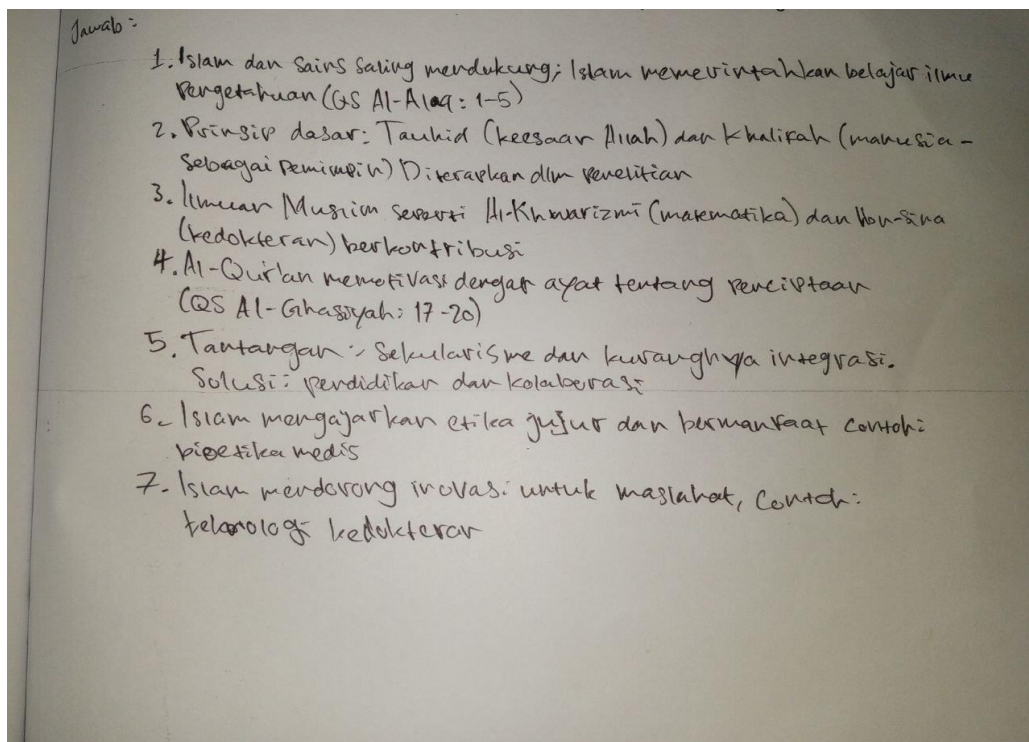 Jawab :
1. Islam dan Sains Saling mendukung; Islam memerintahkan belajar ilmu
Pengetahuan (QS Al-Alaq : 1-5)
2. Prinsip dasar : Tauhid (keesaan Allah) dan Khalifah (manusia -
Sebagai Pemimpin) Diterapkan dlm penelitian
3. Ilmuan Muslim seperti Al-Khwarizmi (matematika) dan Ibnu-Sina
(kedokteran) berkontribusi
4. Al-Qur'an memotivasi dengan ayat tentang penciptaan
(QS Al-Ghasiyah : 17-20)
5. Tantangan : Sekularisme dan kurangnya integrasi.
Solusi : pendidikan dan kolaborasi
6. Islam mengajarkan etika jujur dan bermanfaat contoh :
bioetika medis
7. Islam mendorong inovasi untuk maslahat, Contoh :
teknologi kedokteran